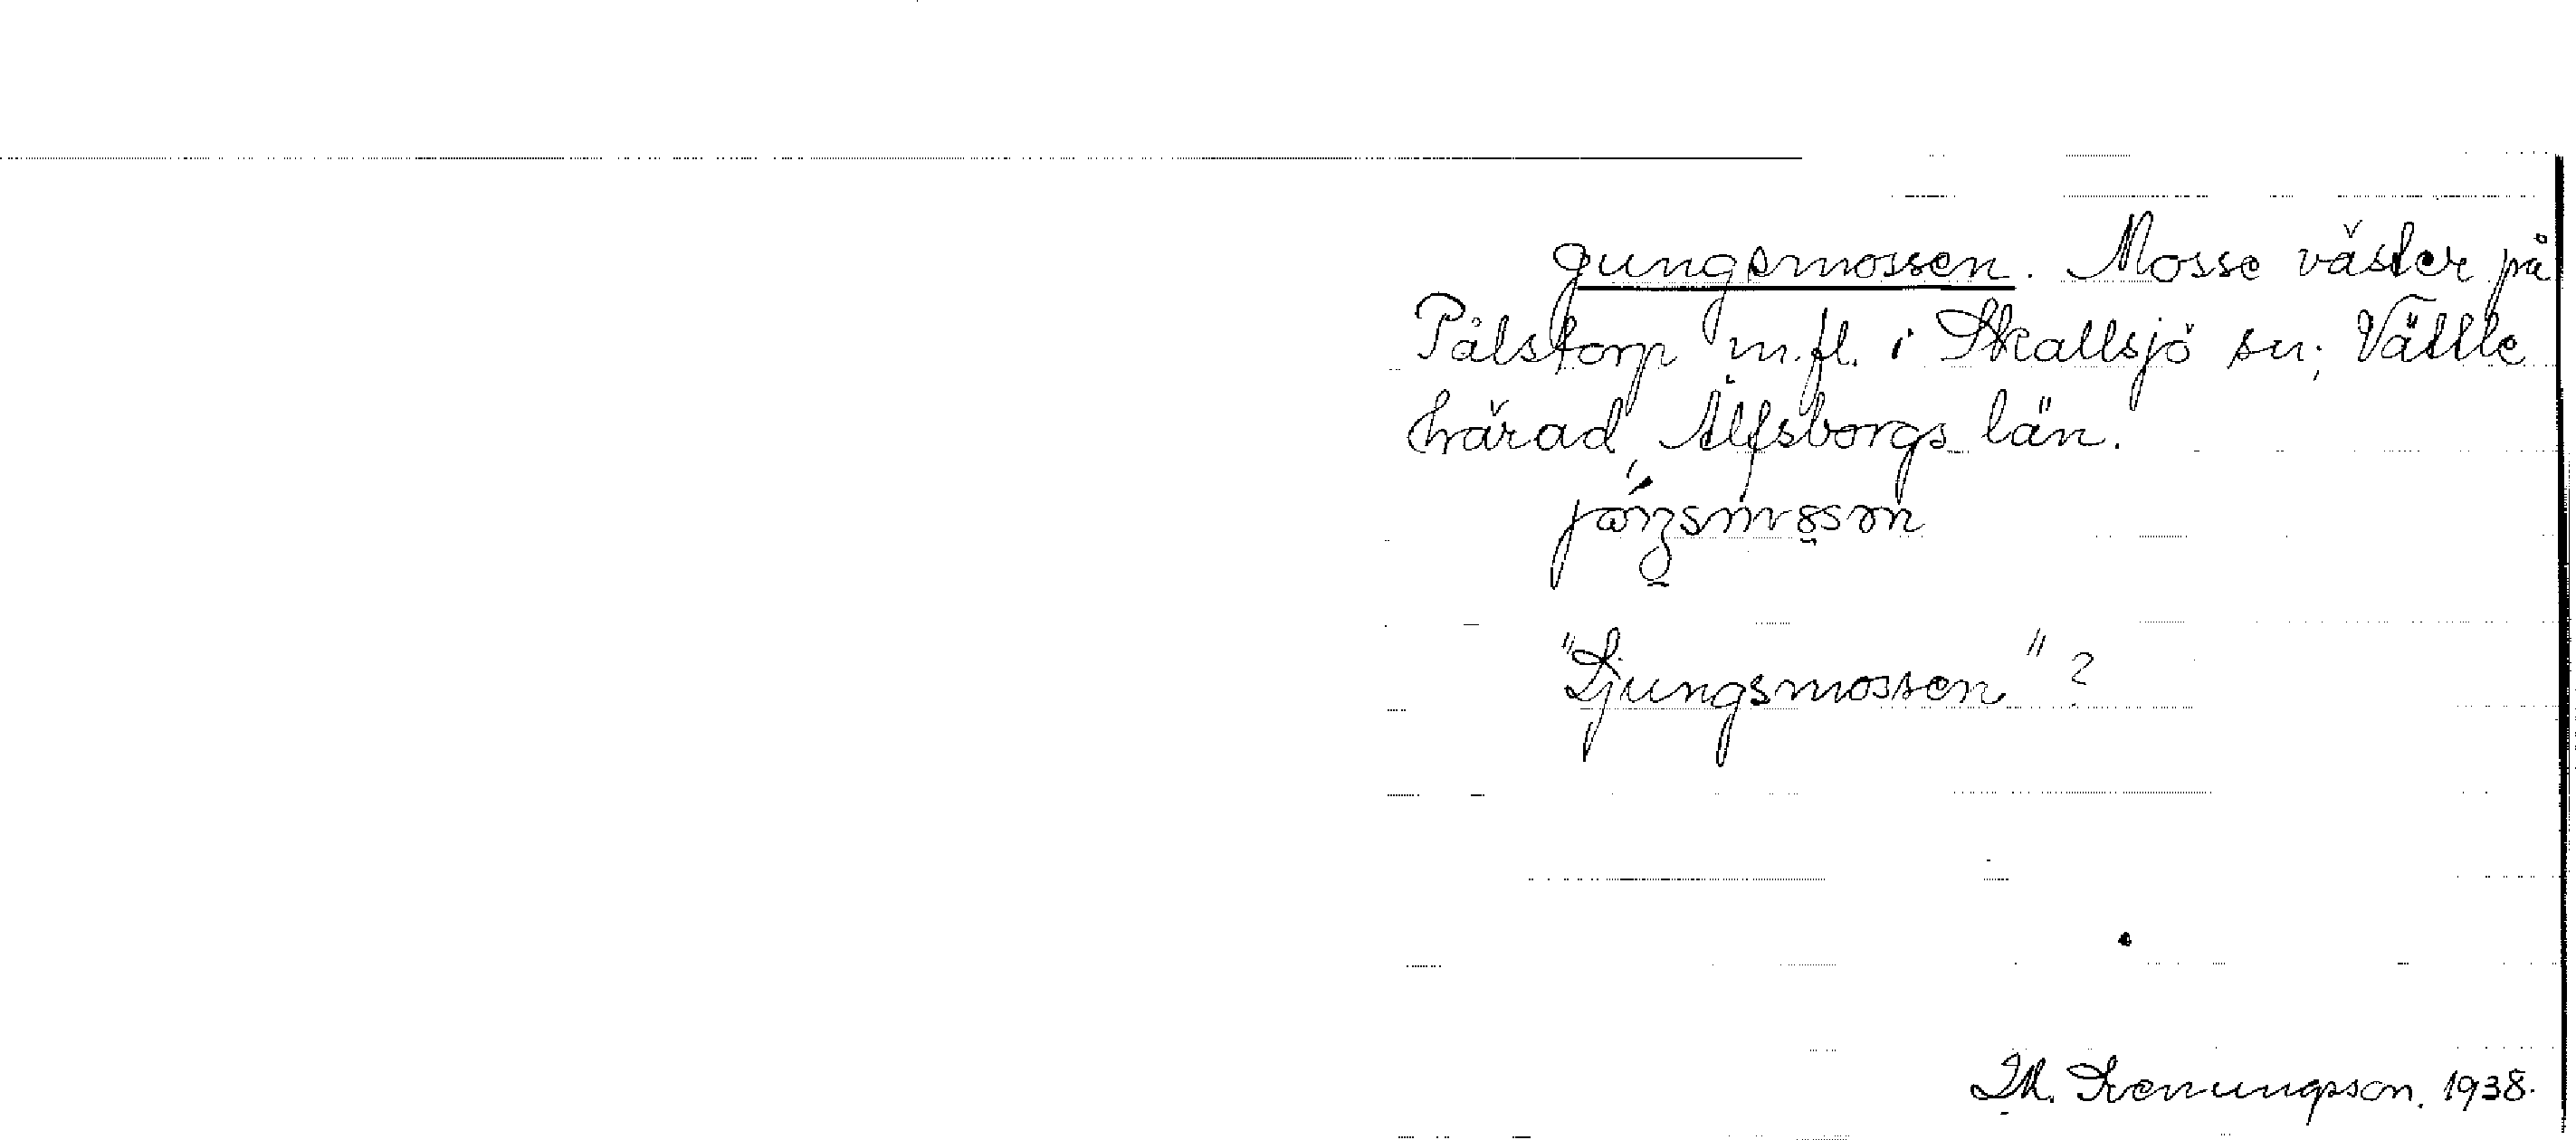 Jungsmossen. Mosse väster på
Pålstorp m.fl. i Skallsjö sn; Vättle
härad, Älfsborgs län.
"Ljungsmossen"?
1938.